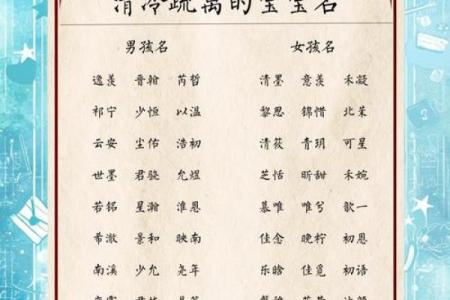 清冷疏离的宝宝名
男孩名 女孩名
逸羡 晋翰 芮哲 清墨 意羡 禾凝
祁宁 少恒 以温 黎思 锦惜 北茉
云安 尘佑 浩初 清筱 青玥 可星
世墨 君骁 允煜 芝恬 昕甜 禾婉
若铭 星瀚 淮恩 慕唯 唯兮 歆一
希澈 景和 映南 佳念 晚柠 初恩
南溪 少允 尧年 乐晗 佳觅 初语